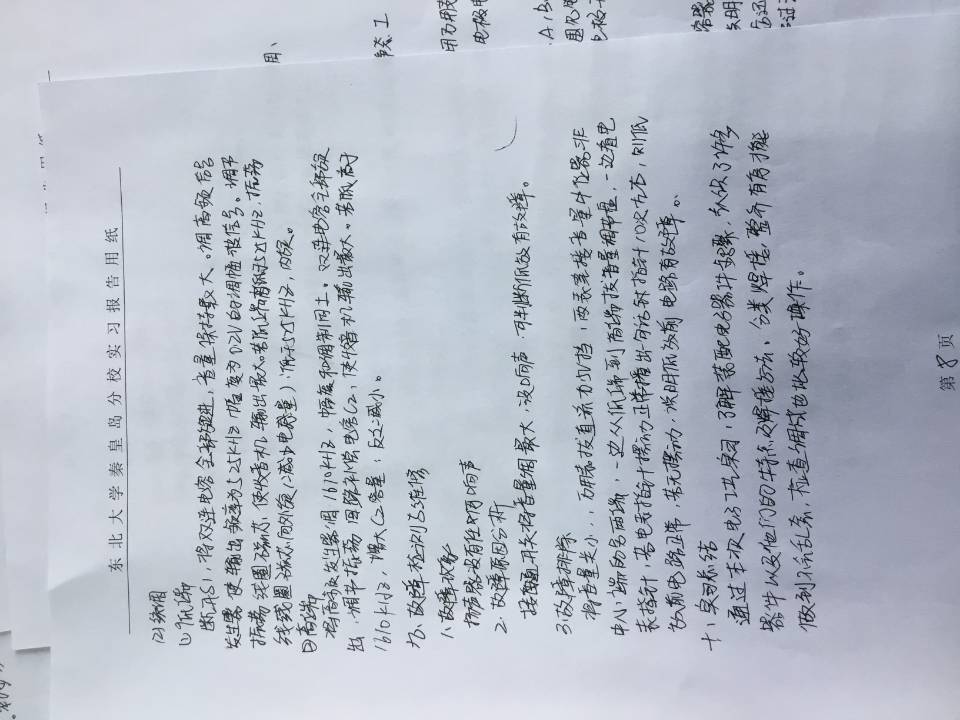 东北大学秦皇岛分校实习报告用纸
(2)统调
①低端
断开S1,将双连电容全部旋进,音量保持最大。调高频信号
发生器使输出频率为525KHz 幅度为0.2V的调幅波信号。调节
振荡线圈磁芯,使收音机输出最大。若低端高于525KHz,振荡
线圈磁芯向外旋(减少电感量),低于525KHz,内旋。
②高端
将高频发生器调1610KHz,幅度和调制同上。双连电容全部旋
出,调节振荡回路补偿电容C2,使收音机输出最大。若低高于
1610KHz,增大C2容量;反之减小。
九、故障检测与维修
1.故障现象
扬声器没有任何响声
2.故障原因分析
接通开关将音量调最大,没响声,可判断低放有故障。
3.故障排除
将音量关小,万用表拔直流0.5V挡,两表笔接音量电位器非
中心端的另两端,一边从低端到高端拔音量调节盘,一边看电
表指针,若电表指针摆动正常播出一句话时指针10次左右,则低
放前电路正常,若无摆动,说明低放前电路有故障。
十、实习总结
通过本次电子工艺实习,了解装配电子器件步骤,认识了许多
器件以及他们的特点及焊接方法。分类焊接,整齐有序才能
做到不会乱套,检查调试也比较好操作。
第8页
用、
静态工
用万用表
电极电
A,b
电极
容器